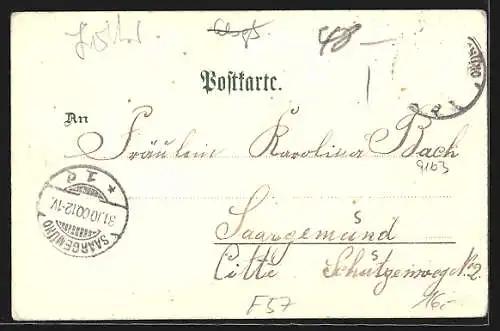 48 —
Postkarte.
An
Fräulein Karolina Bach
9163
* 1 c
31.10.00.12-1V.
SAARGEMÜND
s
Saargemünd
s
Citti Schützenweg No 2.
F57
16.-